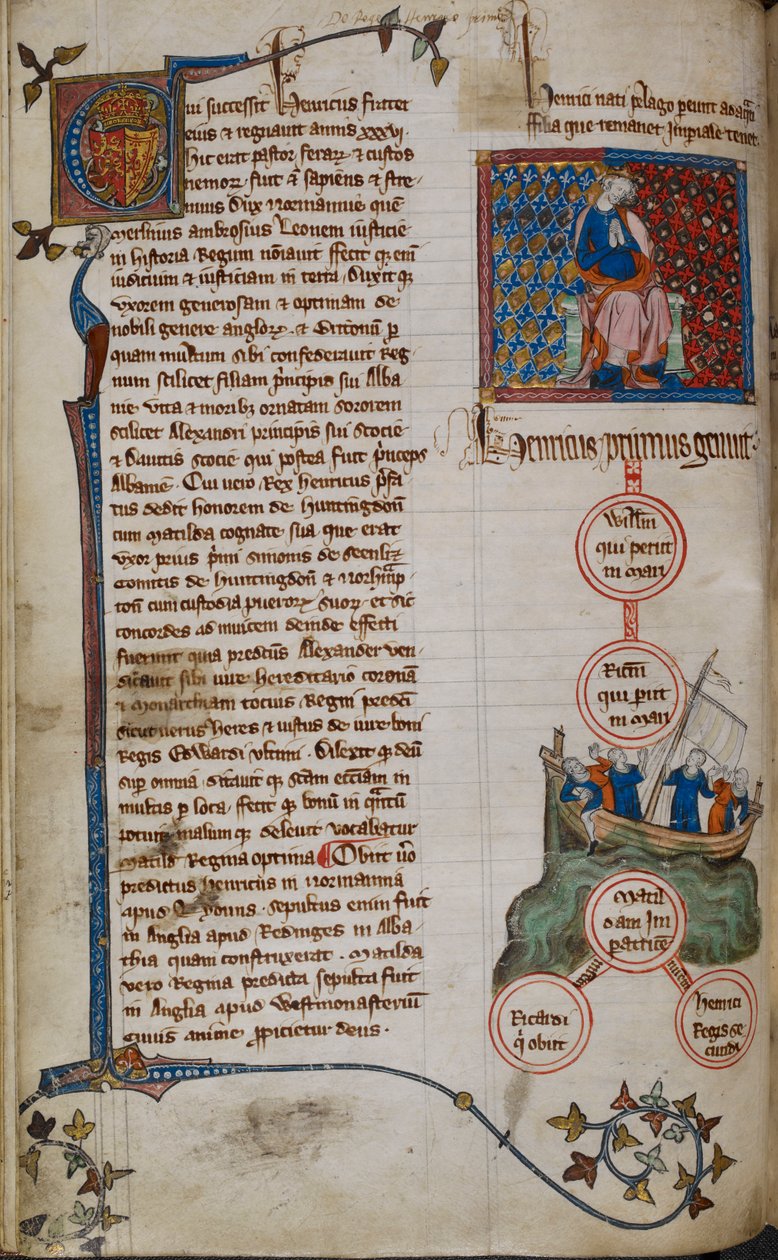 De Rege Henrico primo
Cui successit Henricus frater
eius & regnauit annis xxxvj.
hic erat pastor ferarz & custos
nemorz fuit & sapiens & stre-
nuus Dux Normannie quē
merlinus ambrosius Leonem iusticie
in historia Regum noīauit ffecit qz eni
iudicium & iusticiam in terra. Duxit qz
vxorem generosam & optimam de
nobili genere anglorz. & Britonū p
quam multum sibi confederauit Reg-
num scilicet filiam p'ncipis sui Alba
nie vita & moribz ornatam sororem
scilicet Alexandri principis sui Scocie
& Dauitis Scocie qui postea fuit p'nceps
Albanie. Cui uero Rex henricus p'fa
tus dedit honorem de huntingdon
cum Matilda cognate sua que erat
vxor prius p'mi Simonis de Senliz
Comitis de huntingdon & Norhamp
ton cum custodia puerorz suorz. et sic
concordes ad inuicem deinde effecti
fuerunt quia predictus Alexander uen
dicauit sibi iure hereditario coronā
& Monarchiam tocius Regni predci
sicut uerus heres & iustus de iure boni
Regis Edwardi vltimi. Dilexit qz deū
sup omnia. ditauit qz scam ecciam in
multis p loca. ffecit qz bonū in qantū
potuit malum qz deleuit vocabatur
Matild Regina optima Obiit uō
predictus henricus in normannia
apud Lyouns. sepultus enim fuit
in Anglia apud Redinges in Abba
thia quam construxerat. Matilda
vero Regina predicta sepulta fuit
in Anglia apud Westmonasteriū
cuius anime ppicietur deus.
Henrici nati pelago pereunt ad aqua
ffilia que remanet Imperiale tenet.
Henricus primus genuit
Willm
qui periit
in Mari
Ricm
qui periit
in Mari
Matil
dam Im
patrice
Ricardi
q̄ obiit
henrici
Regis se
cundi